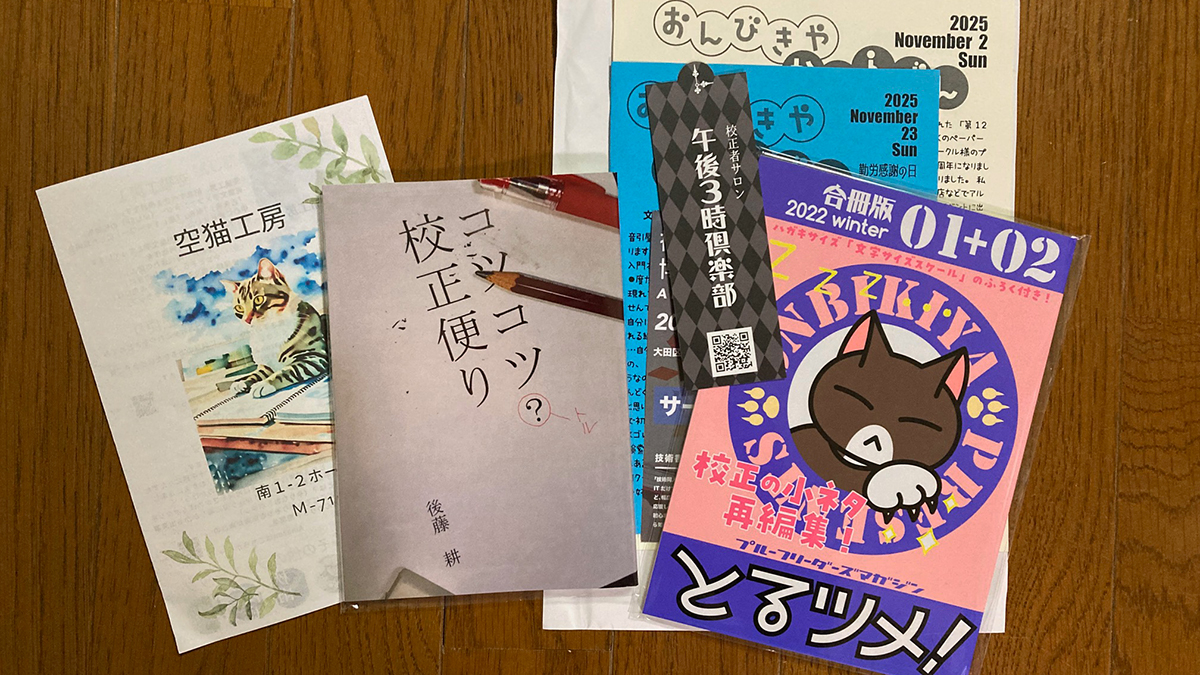 空猫工房
南1-2ホー
M-71
コツコツ
校正便り
?
トル
後藤 耕
おんびきや
2025
November 2
Sun
2025
November
23
Sun
勤労感謝の日
きや
校正者サロン
午後3時倶楽部
合冊版
2022 winter
01+02
ハガキサイズ「文字サイズスケール」のふろく付き!
Z Z Z
ONBIKIYA PRESENTS
校正の小ネタ
再編集!
プルーフリーダーズマガジン
とるツメ!
れた「第12
くのペーパー
ークル様のプ
周年になりまし
りました。私
店などでアル
音引屋
ります
入門
●度た
現れ
せんで
自分
大田区
サー
技術書